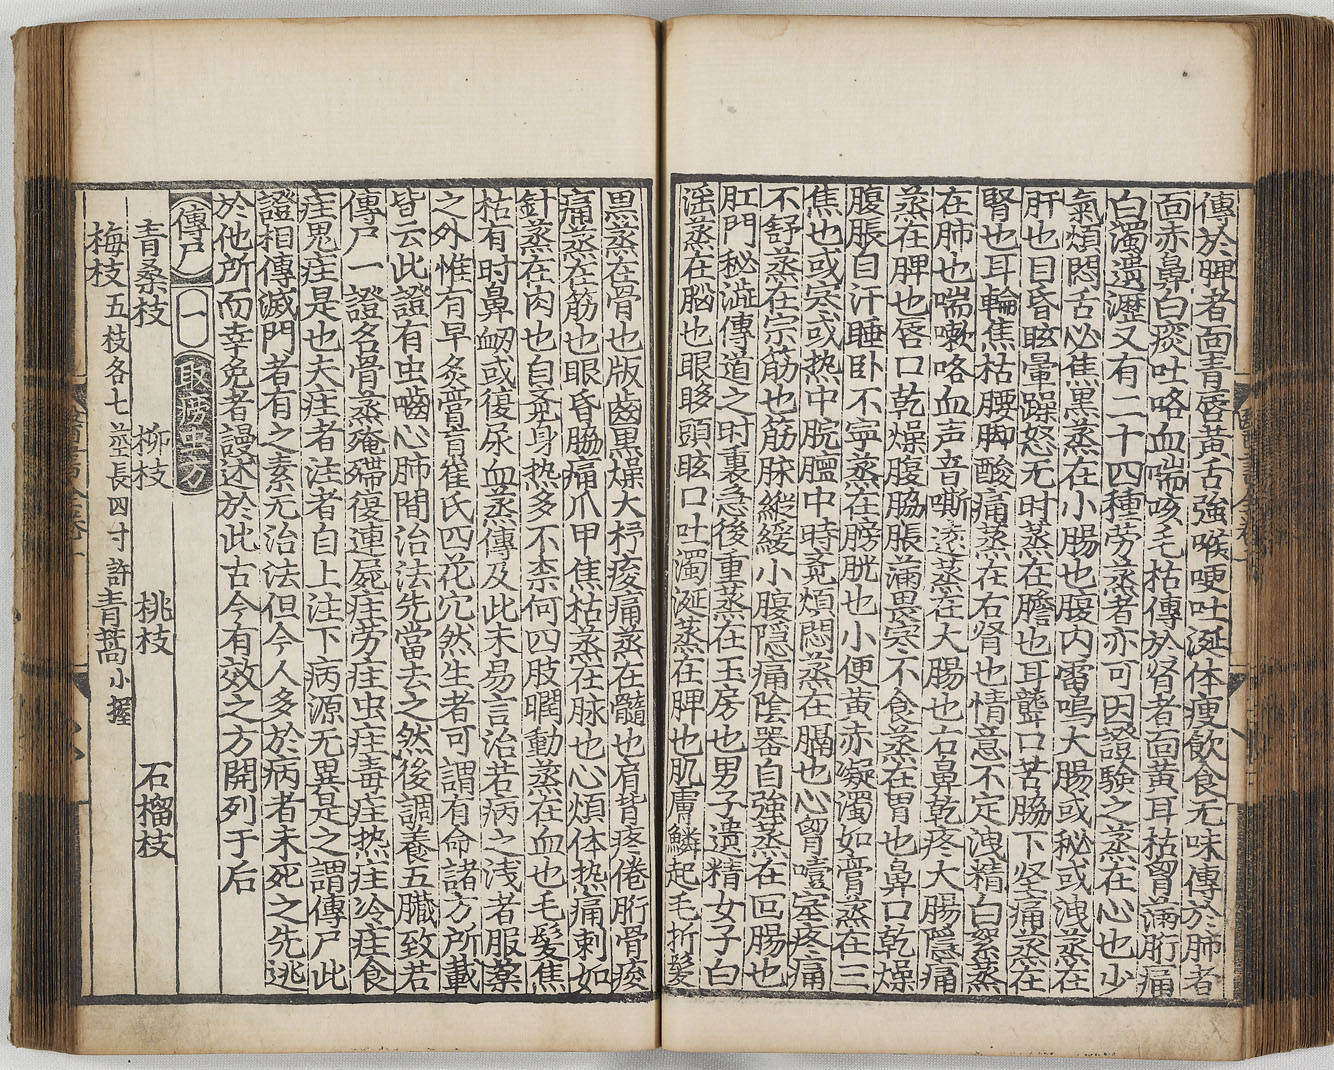 傳於脾者面青唇黃舌強喉哽吐涎体瘦飲食无味傳於肺者
面赤鼻白痰吐咯血喘咳毛枯傳於腎者面黃耳枯胷滿胻痛
白濁遺瀝又有二十四種劳蒸者亦可因證驗之蒸在心也少
氣煩悶舌必焦黒蒸在小腸也腹内雷鳴大腸或秘或洩蒸在
肝也目昏眩暈躁怒无时蒸在膽也耳聾口苦脇下坚痛蒸在
腎也耳輪焦枯腰脚酸痛蒸在右肾也情意不定洩精白絮蒸
在肺也喘嗽咯血声音嘶 蒸在大腸也右鼻乾疼大腸隱痛
蒸在脾也唇口乾燥腹脇脹滿畏寒不食蒸在胃也鼻口乾燥
腹脹自汗睡卧不寧蒸在膀胱也小便黄赤凝濁如膏蒸在三
焦也或寒或热中脘膻中時竟煩悶蒸在膈也心胷噎塞疼痛
不舒蒸在宗筋也筋脉縱緩小腹隱痛陰器自強蒸在回腸也
肛門秘澁傳道之时裏急後重蒸在玉房也男子遺精女子白
淫蒸在脳也眼眵頭眩口吐濁涎蒸在脾也肌膚鱗起毛折髪
黒蒸在骨也版齒黒燥大杼痠痛蒸在髓也肩背疼倦胻骨痠
痛蒸在筋也眼昏脇痛爪甲焦枯蒸在脉也心煩体热痛刺如
針蒸在肉也自竟身热多不柰何四肢瞤動蒸在血也毛髪焦
枯有时鼻衂或復尿血蒸傳及此未易言治若病之浅者服藥
之外惟有早灸膏肓崔氏四花穴然生者可謂有命諸方所載
皆云此證有虫嚙心肺間治法先當去之然後調養五臟致若
傳尸一證名骨蒸殗殜復連屍疰劳疰虫疰毒疰热疰冷疰食
疰鬼疰是也夫疰者注者自上注下病源无異是之謂傳尸此
證相傳滅門者有之素无治法但今人多於病者未死之先逃
於他所而幸免者謾述於此古今有效之方開列于后
傳尸 一 取痨虫方
青桑枝 柳枝 桃枝 石榴枝
梅枝五枝各七莖長四寸許青蒿小握